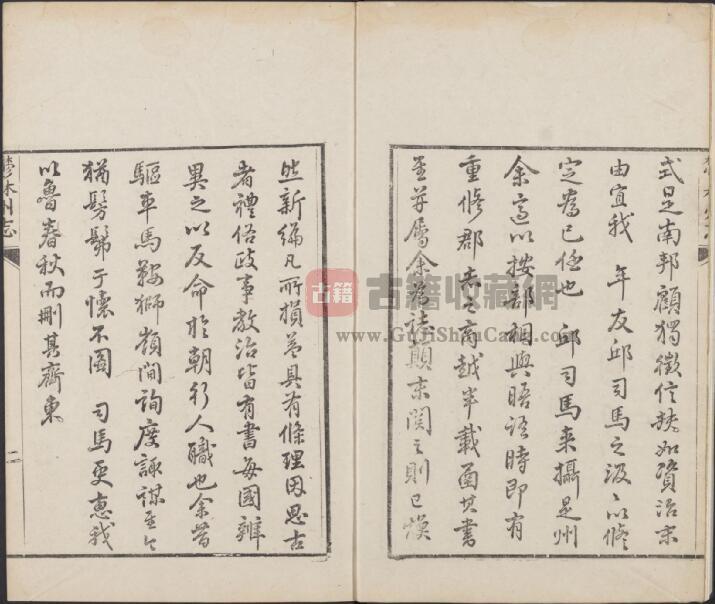 式是南邦顧獨徵信執如資治宋
由宜我 年友邱司馬之汲〻以修
定為己任也 邱司馬來攝是州
余適以按部相與晤語時即有
重修郡志之商越半載函其書
至并屬余為誌顛末閱之則已燦
然新編凡所損益具有條理因思古
者禮俗政事教治皆有書每國辨
異之以反命於朝行人職也余昔
驅車馬鞍獅嶺間詢度諏謀至今
猶髣髴于懷不圖 司馬更惠我
以魯春秋而刪其齊東
鬱林州志
二
古籍
古籍收藏網
www.GuJiShouCang.com